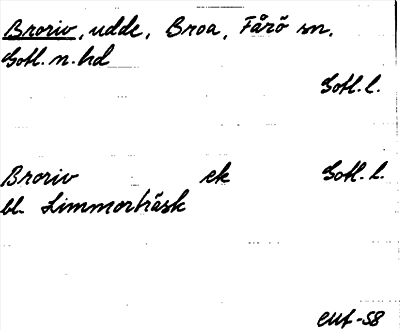 Broriv, udde, Broa, Fårö sn.
Gotl. n. hd
Gotl. l.
Broriv ek Gotl. l.
bl. Limmorträsk
CMf-58